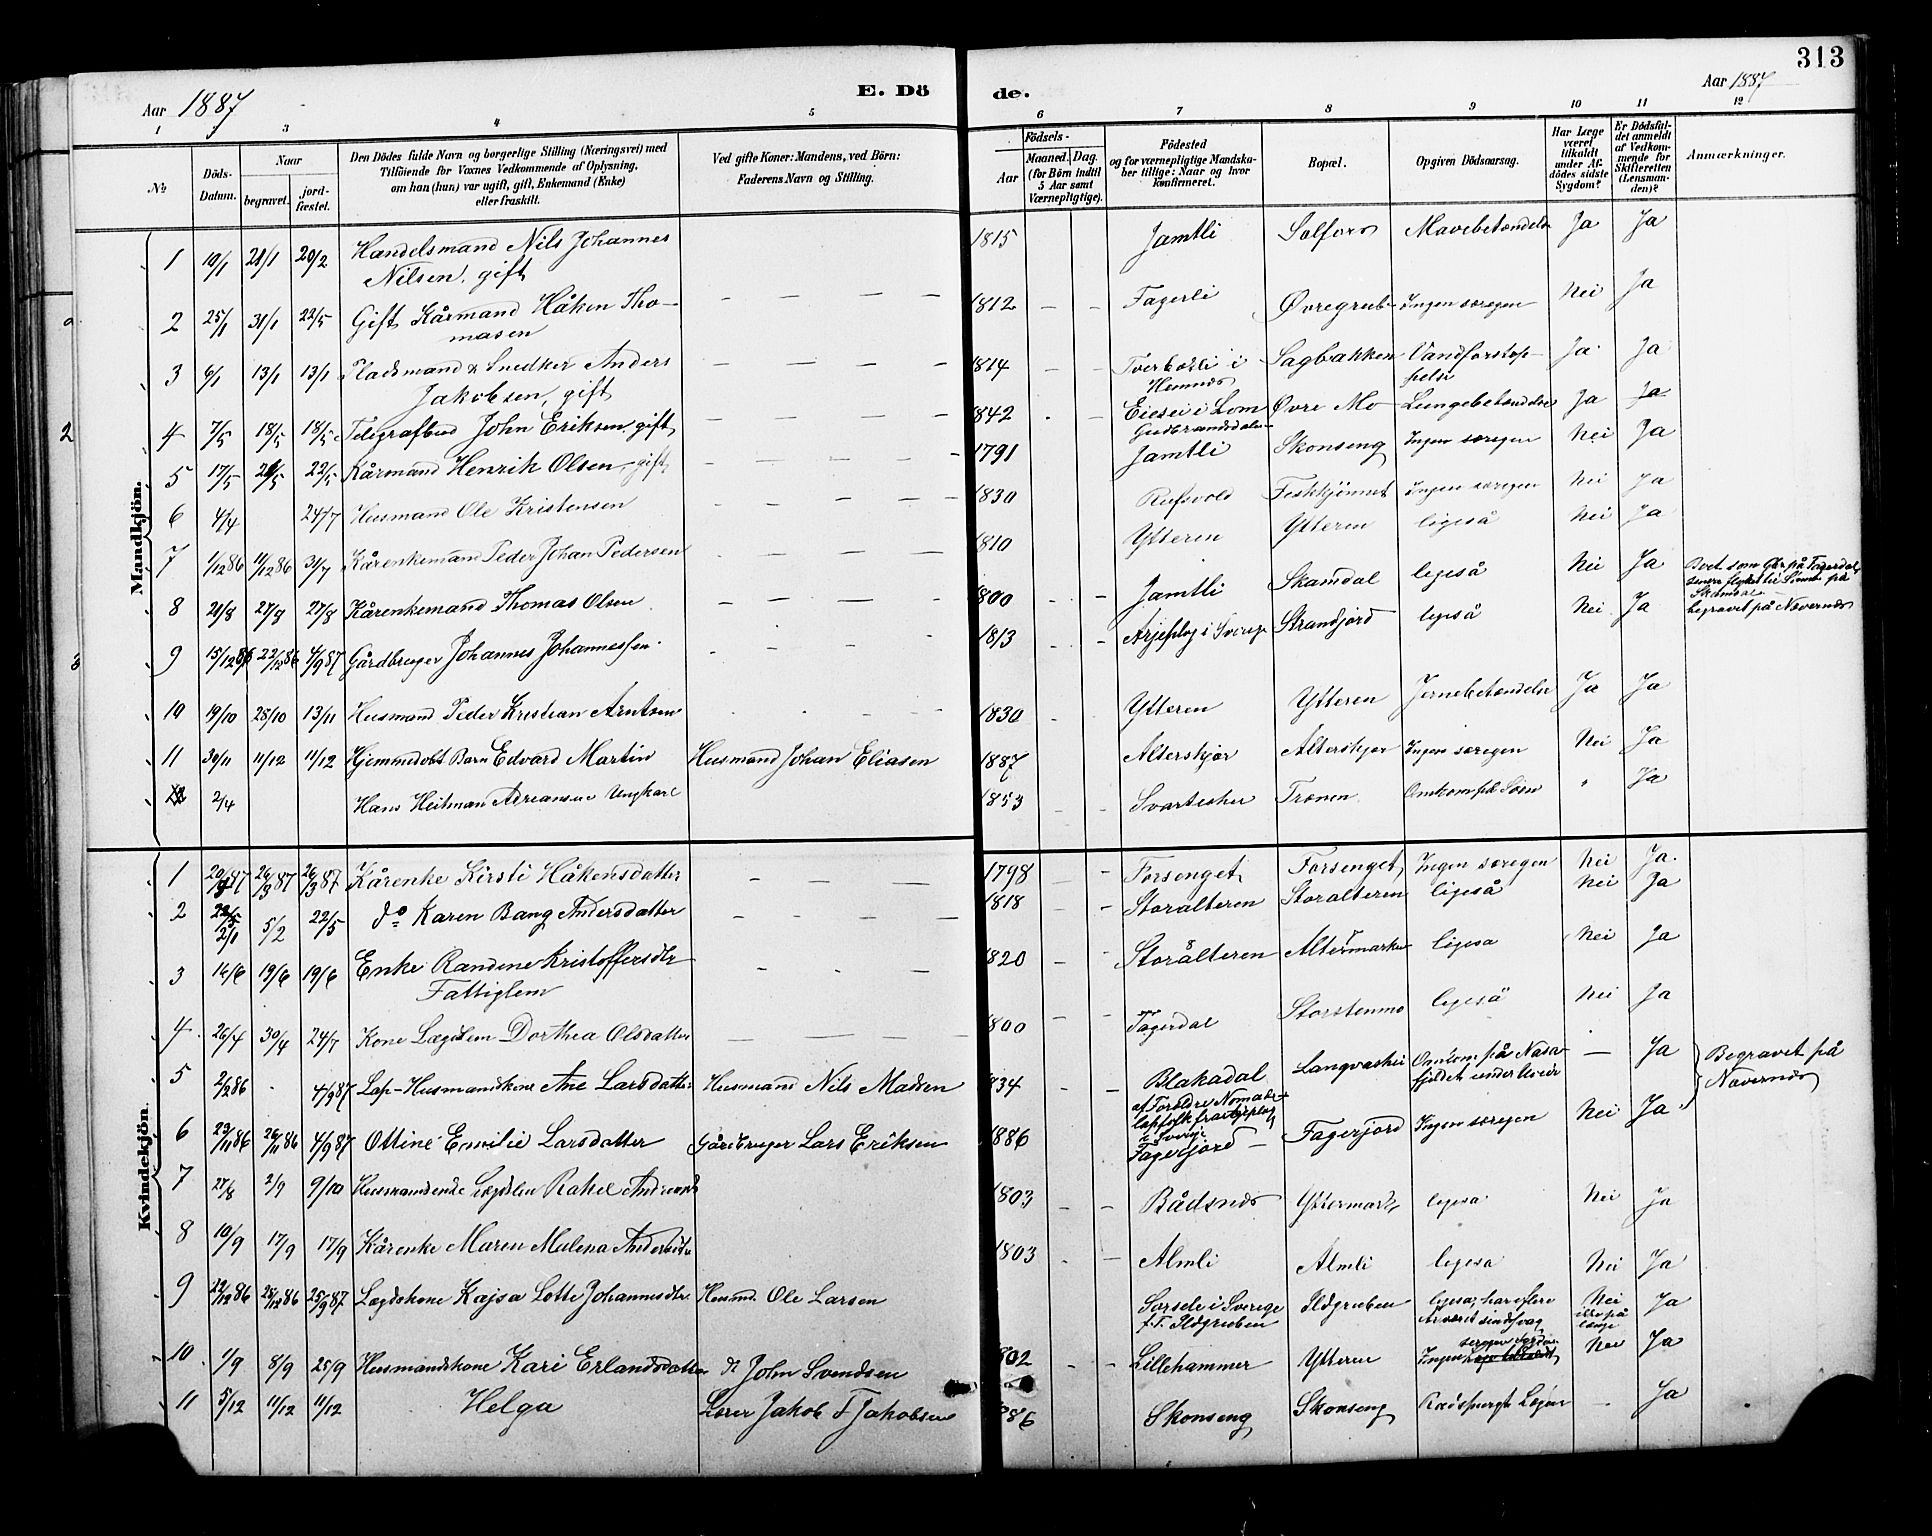 313
Aar 1887 E. Dö de. Aar 1887
1 3 4 5 6 7 8 9 10 11 12
No
Döds-Datum.
Naar
begravet.
jord-fæstet.
Den Dödes fulde Navn og borgerlige Stilling (Næringsvei) med
Tilföiende for Voxnes Vedkommende af Oplysning,
om han (hun) var ugift, gift, Enkemand (Enke)
eller fraskilt.
Ved gifte Koner: Mandens, ved Börn:
Faderens Navn og Stilling.
Födsels-
Aar
Maaned. Dag.
(for Börn indtil
5 Aar samt
Værnepligtige).
Födested
og for værnepligtige Mandska-
ber tillige: Naar og hvor
konfirmeret.
Bopæl.
Opgiven Dödsaarsag.
Har Læge
været
tilkaldt
under Af-
dödes sidste
Sygdom?
Er Dödsfal-
det anmeldt
af Vedkom-
mende for
Skifteretten
(Lensman-
den)?
Anmærkninger.
Mandkjön.
1 19/1 21/1 20/2 Handelsmand Nils Johannes 1815 Jamtli Selfors Mavebetændelse Ja Ja
Nilsen, gift
2 25/1 31/1 22/5 Gift Kårmand Håken Tho- — — — — 1812 — — Fagerli Øvregrub- Ingen særegen Nei Ja
masen
3 6/1 13/1 13/1 Pladsmand & Snedker Anders — — — — 1814 — — Tverbotli i Sagbakken Vandforstop- Ja Ja
Jakobsen, gift Hemnæs pelse
4 7/5 18/5 18/5 Telegrafbud John Eriksen, gift — — — — 1842 Eiesei i Lom Øvre Mo Lungebetændelse Ja Ja
Gudbrandsdalen
5 17/5 21/5 22/5 Kårmand Henrik Olsen, gift — — — — 1791 Jamtli Skonseng Ingen særegen Nei Ja
6 4/4 24/7 Husmand Ole Kristensen — — — — 1830 Røfsvold Fisktjønnet Ingen særegen Nei Ja
7 1/12 86 11/12 86 31/7 Kårenkemand Peder Johan Pedersen — — — — 1810 Ytteren Ytteren ligeså Nei Ja
8 21/8 27/8 27/8 Kårenkemand Thomas Olsen — — — — 1800 — Jamtli Skamdal ligeså Nei Ja Boet som Gbr på Fagerdal,
senere flyttet til på
Skamdal
9 15/12 86 22/12 86 4/9 87 Gårdbruger Johannes Johannessen 1813 — Arjeplog i Sverige Strandjord ligeså Nei Ja begravet på Nævernæs
10 19/10 25/10 13/11 Husmand Peder Kristian Arntsen 1830 Ytteren Ytteren Ja Ja
11 30/11 11/12 11/12 Hjemmedøbt Barn Edvard Martin Husmand Johan Eliasen 1887 Alterskjær Alterskjær Ingen særegen Nei Ja
12 2/4 Hans Heitman Adriansen Ungkarl 1853 Tronen Omkom på Søen " Ja
Kvindekjön.
1 20/3 87 26/3 87 26/3 87 Kårenke Kirsti Håkensdatter — — — 1798 — Forsenget Forsenget Ingen særegen Nei Ja
2 2/1 5/2 22/5 do Karen Bang Andersdatter — — — — 1818 — Storalteren Storalteren ligeså Nei Ja
3 14/6 19/6 19/6 Enke Randine Kristoffersdtr — — — 1820 — Storålteren Altermarken ligeså Nei Ja
Fattiglem
4 26/4 30/4 24/7 Kone Lægdslem Dorthea Olsdatter — — — 1800 — — Fagerdal Storstenmo ligeså Nei Ja
5 2/2 86 4/9 87 Lap-Husmandskone Ane Larsdatter Husmand Nils Madsen 1834 — Blakadal Langvashei Omkom på Nasa- — Ja Begravet på
af Forældre Nomade- fjeldet under Uveir Nævernæs
lapfolk fra Arjeplog
i Sverige
6 23/11 86 26/11 86 4/9 87 Ottine Emilie Larsdatter Gårdbruger Lars Eriksen 1886 Fagerjord — Fagerjord Ingen særegen Nei Ja
7 27/8 2/9 9/10 Husmandsenke Lægdslem Rahel 1803 — — Bådsnes Yttermark ligeså Nei Ja
8 10/9 17/9 17/9 Kårenke Maren Malena Andersdtr 1803 — Almli Almli ligeså Nei Ja
9 22/12 86 28/12 86 25/9 87 Lægdskone Kajsa Lotte Johannesdtr Husmd. Ole Larsen Sorsele i Sverige Ildgruben ligeså, har i flere Nei Ja
f. T. Ildgruben År været sindssvag
10 1/9 8/9 25/9 Husmandskone Kari Erlandsdatter do John Svendsen 1802 — — Lillehammer Ytteren Ingen Nei Ja
11 5/12 11/12 11/12 Helga Lærer Jakob F Jakobsen 1886 Skonseng Skonseng — Ja